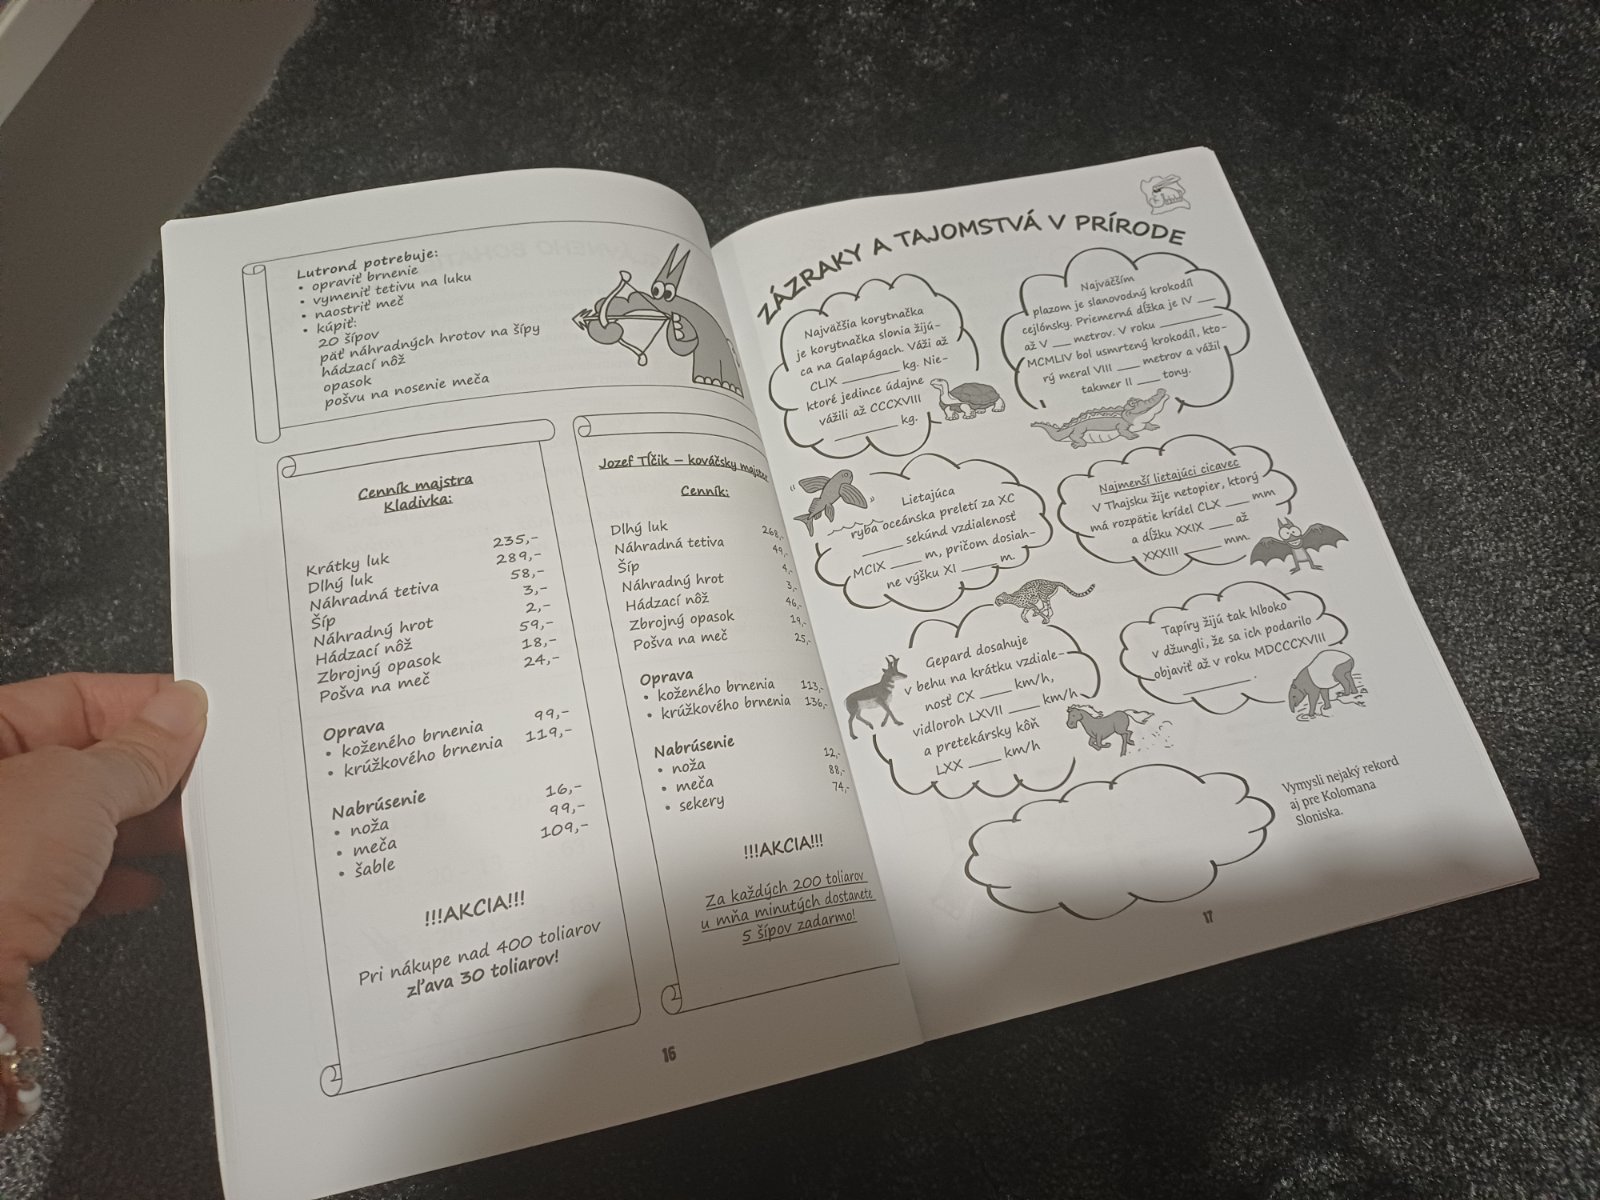 Lutrond potrebuje:
• opraviť brnenie
• vymeniť tetivu na luku
• naostriť meč
• kúpiť:
20 šípov
päť náhradných hrotov na šípy
hádzací nôž
opasok
pošvu na nosenie meča
Cenník majstra
Kladivka:
Krátky luk 235,-
Dlhý luk 289,-
Náhradná tetiva 58,-
Šíp 3,-
Náhradný hrot 2,-
Hádzací nôž 59,-
Zbrojný opasok 18,-
Pošva na meč 24,-
Oprava
• koženého brnenia 99,-
• krúžkového brnenia 119,-
Nabrúsenie
• noža 16,-
• meča 99,-
• šable 109,-
!!!AKCIA!!!
Pri nákupe nad 400 toliarov
zľava 30 toliarov!
Jozef Tĺčik – kováčsky majster
Cenník:
Dlhý luk 268,-
Náhradná tetiva 49,-
Šíp 4,-
Náhradný hrot 3,-
Hádzací nôž 46,-
Zbrojný opasok 19,-
Pošva na meč 25,-
Oprava
• koženého brnenia 113,-
• krúžkového brnenia 136,-
Nabrúsenie
• noža 12,-
• meča 88,-
• sekery 74,-
!!!AKCIA!!!
Za každých 200 toliarov
u mňa minutých dostanete
5 šípov zadarmo!
16
ZÁZRAKY A TAJOMSTVÁ V PRÍRODE
Najväčšia korytnačka
je korytnačka slonia žijú-
ca na Galapágach. Váži až
CLIX ________ kg. Nie-
ktoré jedince údajne
vážili až CCCXVIII
________ kg.
Najväčším
plazom je slanovodný krokodíl
cejlónsky. Priemerná dĺžka je IV ___
až V ___ metrov. V roku ________
MCMLIV bol usmrtený krokodíl, kto-
rý meral VIII ___ metrov a vážil
takmer II ___ tony.
Lietajúca
ryba oceánska preletí za XC
_____ sekúnd vzdialenosť
MCIX ____ m, pričom dosiah-
ne výšku XI _____ m.
Najmenší lietajúci cicavec
V Thajsku žije netopier, ktorý
má rozpätie krídel CLX ____ mm
a dĺžku XXIX ____ až
XXXIII _____ mm.
Gepard dosahuje
v behu na krátku vzdiale-
nosť CX ____ km/h,
vidloroh LXVII ____ km/h
a pretekársky kôň
LXX ____ km/h
Tapíry žijú tak hlboko
v džungli, že sa ich podarilo
objaviť až v roku MDCCCXVIII
________ .
Vymysli nejaký rekord
aj pre Kolomana
Sloniska.
17